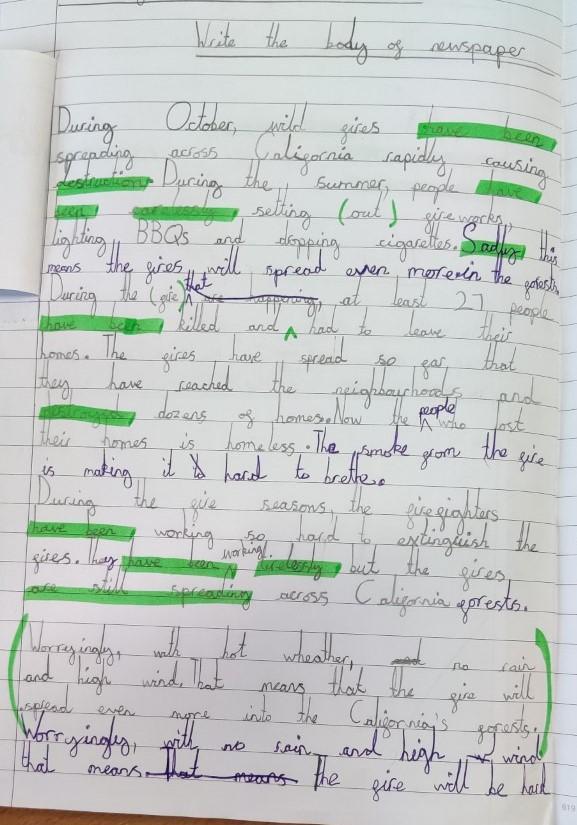 Write the body of newspaper
During October, wild fires have been
spreading across California rapidly causing
destruction. During the summer, people have
been carelessly setting (out) fireworks,
lighting BBQs and dropping cigarettes. Sadly this
means the fires will spread even more in the forests.
During the (fire) that are happening, at least 27 people
have been killed and ^ had to leave their
homes. The fires have spread so far that
they have reached the neighbourhoods and
destroyed dozens of homes. Now the people who lost
their homes is homeless. The smoke from the fire
is making it hard to brethe.
During the fire seasons, the firefighters
have been working so hard to extinguish the
fires. They have been working tirelessly but the fires
are still spreading across California forests.
Worryingly, with hot wheather, and no rain
and high wind. That means that the fire will
spread even more into the California's forests.
Worryingly, with no rain and high wind
that means that means the fire will be hard
619